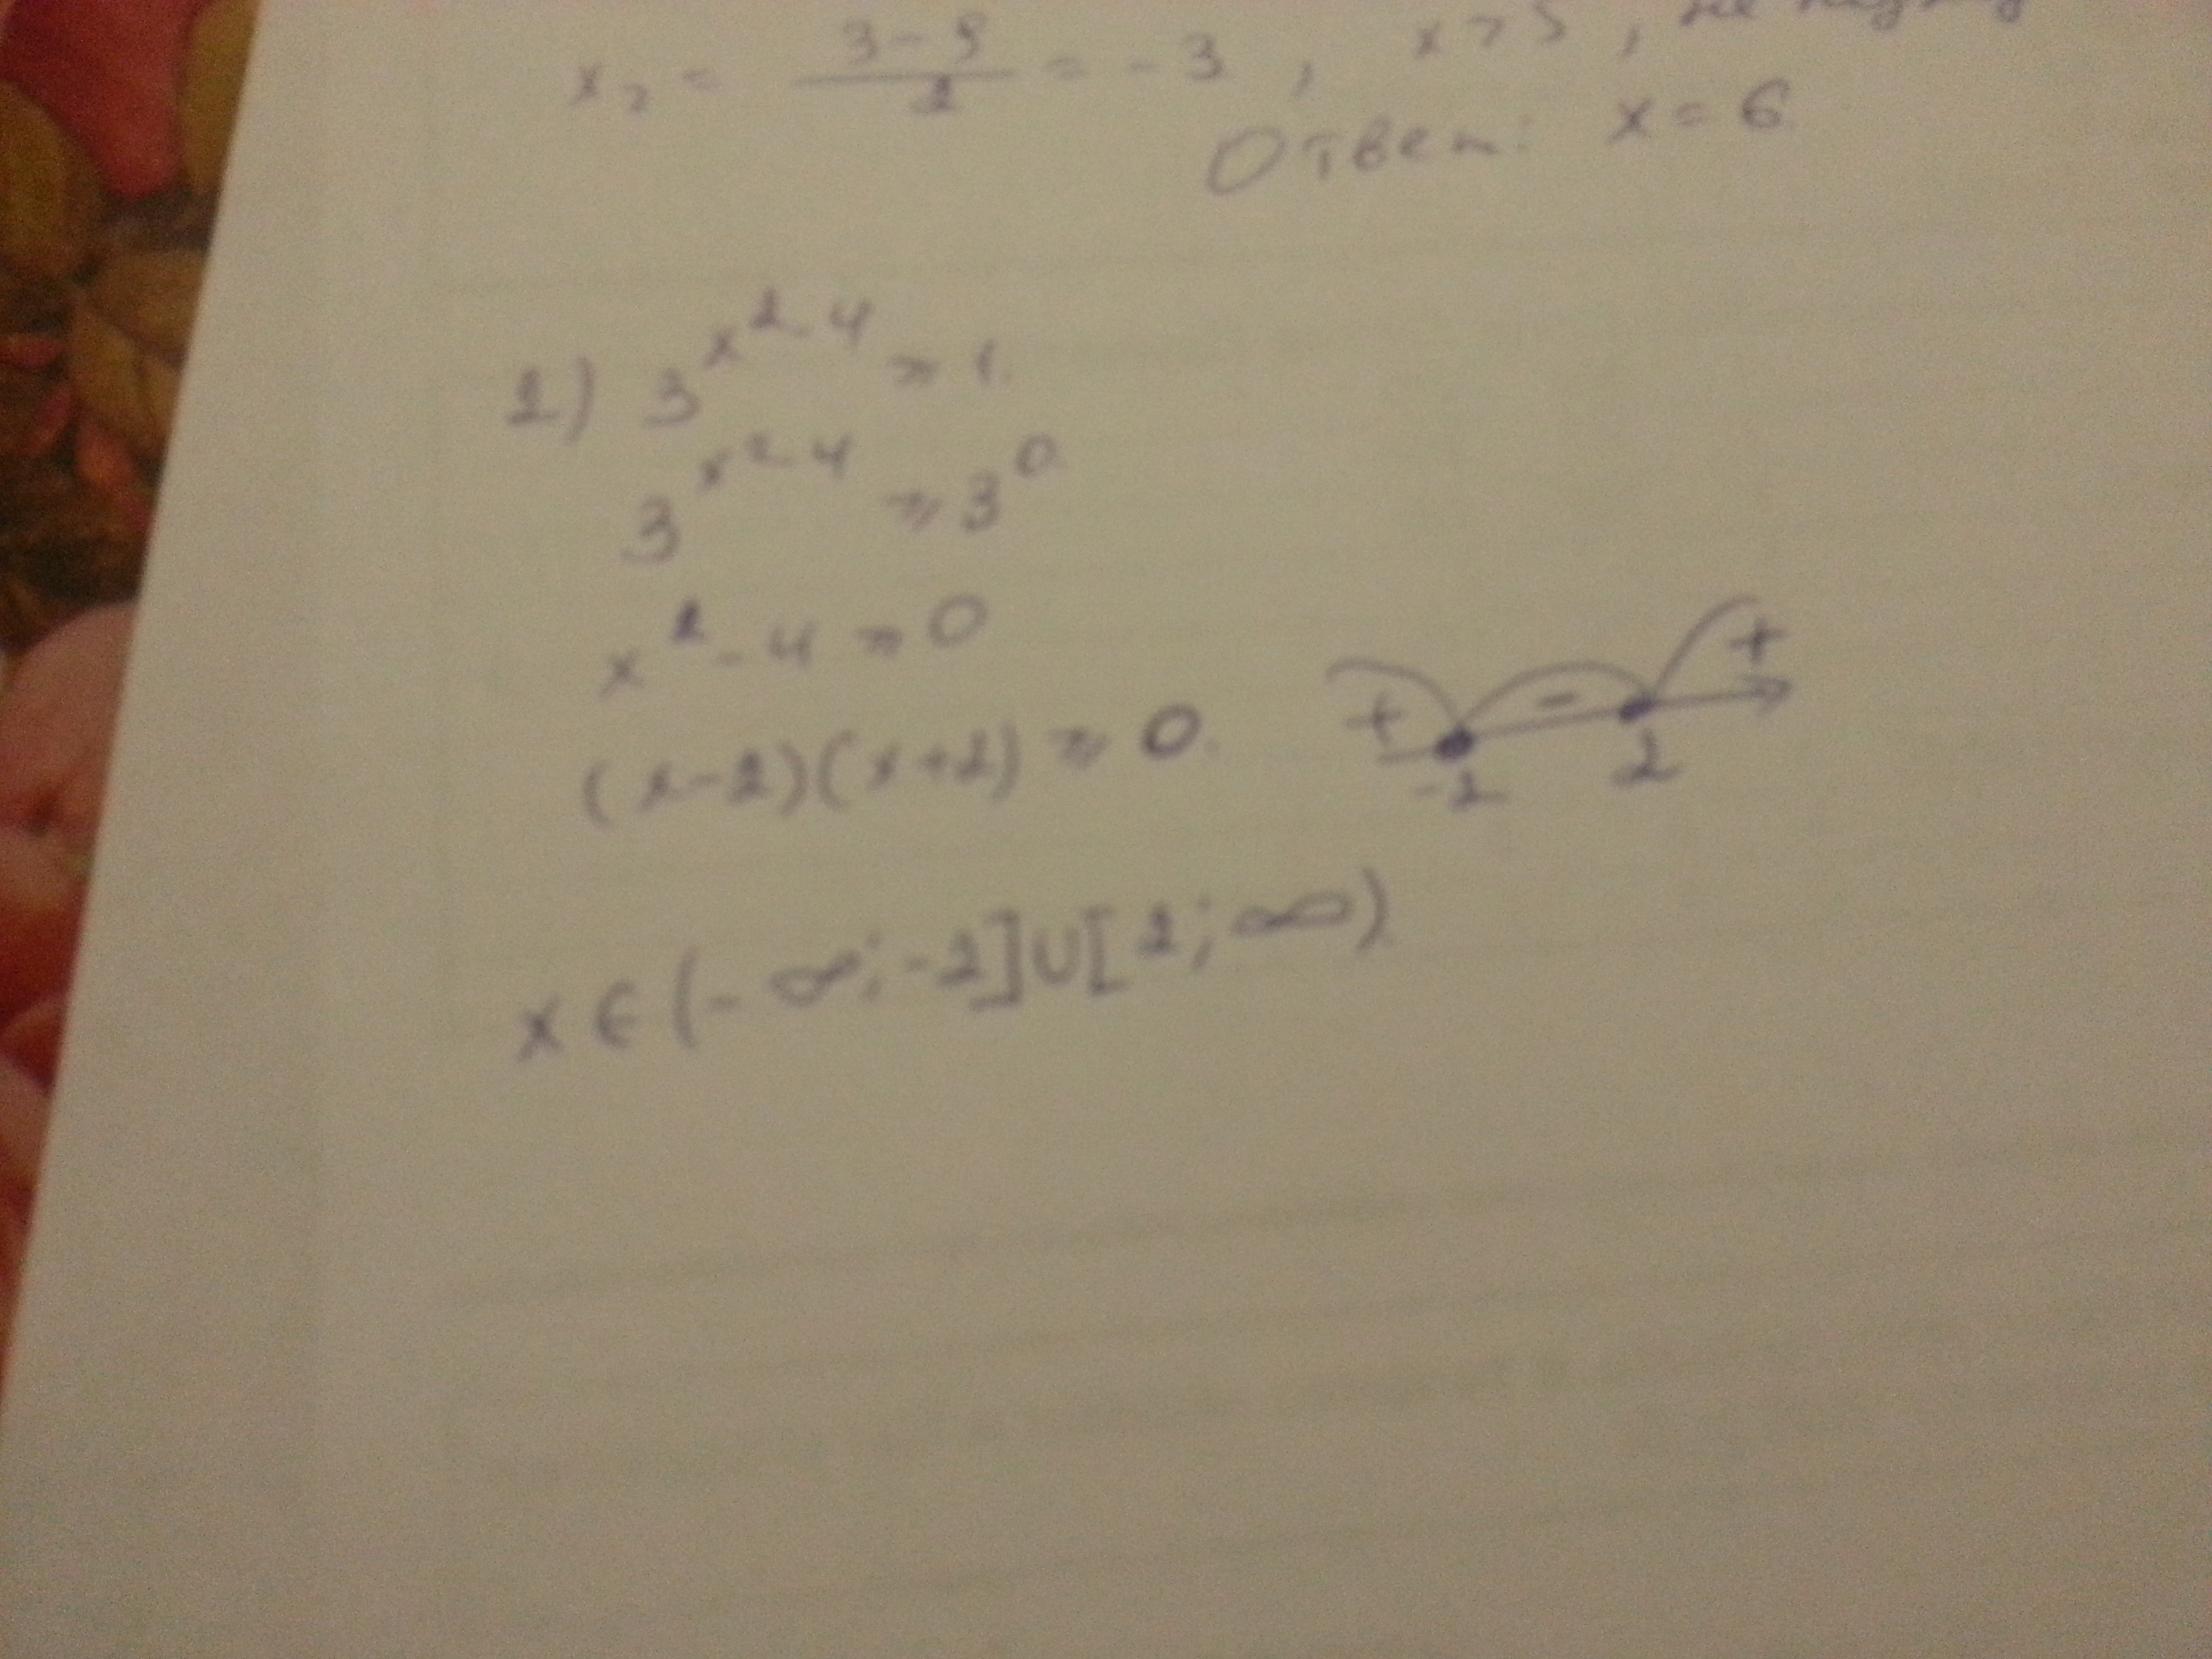 x₂ = (3-9)/2 = -3, x>5, не
Ответ: x=6.
2) 3^(x²-4) ⩾ 1.
3^(x²-4) ⩾ 3^0.
x²-4 ⩾ 0
(x-2)(x+2) ⩾ 0.
+ - +
-2 2
x ∈ (-∞; -2]∪[2; ∞).